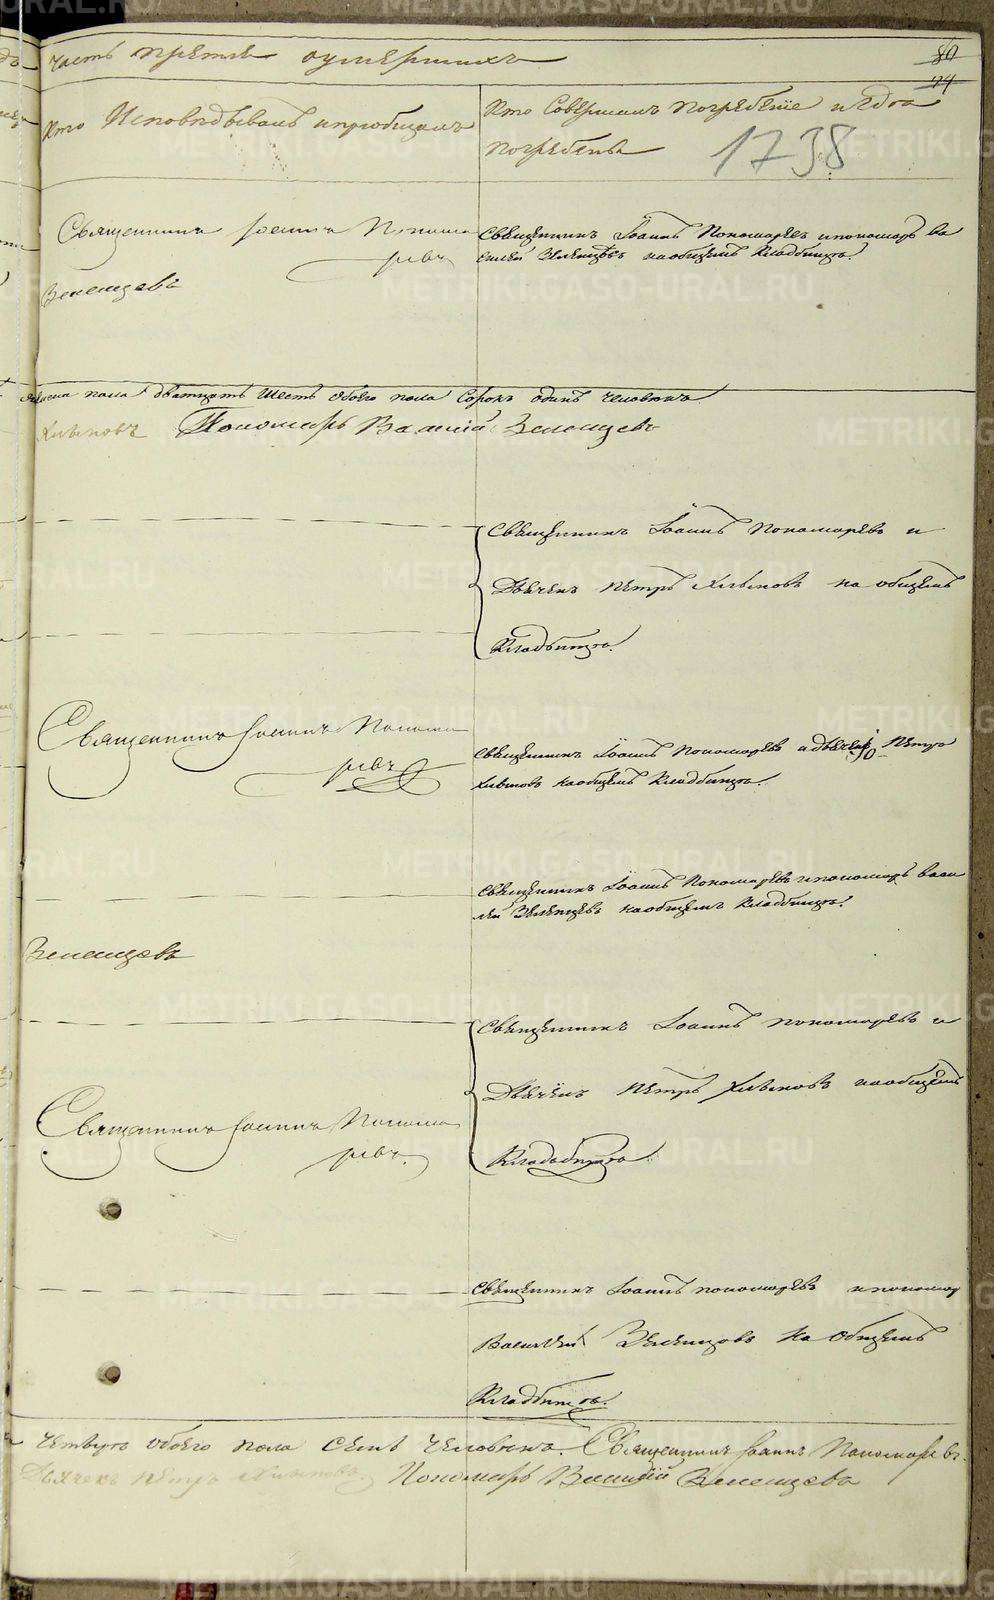 Часть третія о умершихъ
80
74
Кто Исповѣдывалъ и пріобщалъ
Кто Совершалъ Погребеніе и гдѣ
погребены
1738
Священникъ Іоаннъ Понома
ревъ
Зеленцовъ
Священникъ Іоаннъ Пономаревъ и пономарь Ва
силей Зеленцовъ на общемъ Кладбищѣ.
пола дватцать шесть обоего пола Сорокъ одинъ человѣкъ
Хлыновъ Пономарь Василій Зеленцовъ
Священникъ Іоаннъ Пономаревъ и
Дьячекъ Петръ Хлыновъ на общемъ
Кладбищѣ.
Священникъ Іоаннъ Понома
ревъ
Священникъ Іоаннъ Пономаревъ и дьячекъ Петръ
Хлыновъ на общемъ Кладбищѣ.
Священникъ Іоаннъ Пономаревъ и пономарь Васи
лей Зеленцовъ на общемъ Кладбищѣ.
Зеленцовъ
Священникъ Іоаннъ пономаревъ и
Дьячекъ Петръ Хлыновъ на общемъ
Кладбищѣ
Священникъ Іоаннъ Понома
ревъ.
Священникъ Іоаннъ пономаревъ и пономарь
Василей Зеленцовъ на Общемъ
Кладбищѣ.
обоего пола семь человѣкъ. Священникъ Іоаннъ Пономаревъ.
Дьячекъ Петръ Хлыновъ. Пономарь Василій Зеленцовъ
METRIKI.GASO-URAL.RU